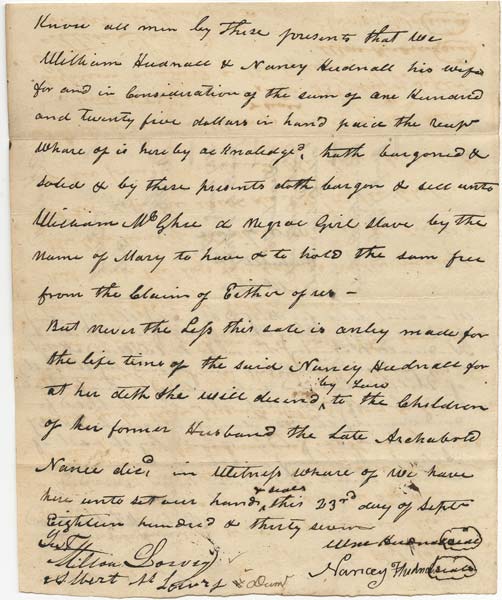 Know all men by these presents that we
William Hudnall & Nancy Hudnall his wife
for and in Consideration of the sum of one Hundred
and twenty five dollars in hand paid the recept
whare of is hereby acknoledged, hath bargoned &
soled & by these presents doth bargon & sell unto
William McGhee a Negroe Girl slave by the
name of Mary to have & to hold the sam free
from the Claim of Either of us –
But never the Less this sale is onley made for
the life time of the said Nancy Hudnall for
at her deth she will decend by Law to the Children
of her former Husband the Late Archabold
Nance decd. in Witness whare of we have
here unto set our hands & seals this 23rd day of Sept
Eighteen hundred & thirty seven
Test
Wm Hudnall seal
Milton Lowery
Nancy Hudnall seal
Albert M Lowry